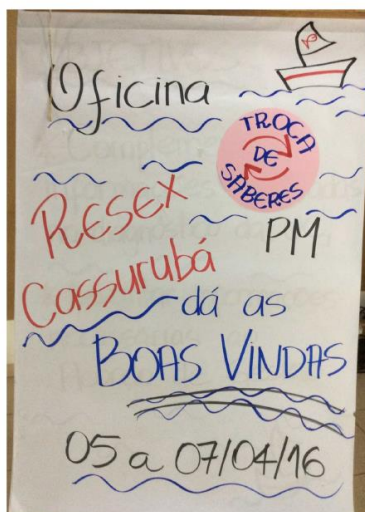 Oficina
TROCA
DE
SABERES
PM
RESEX
Cassurubá
dá as
BOAS VINDAS
05 a 07/04/16